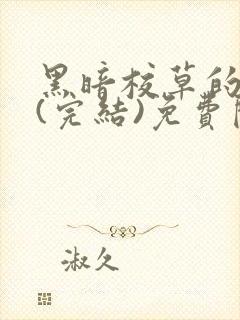 黑暗校草的
(完結)免費
淑久